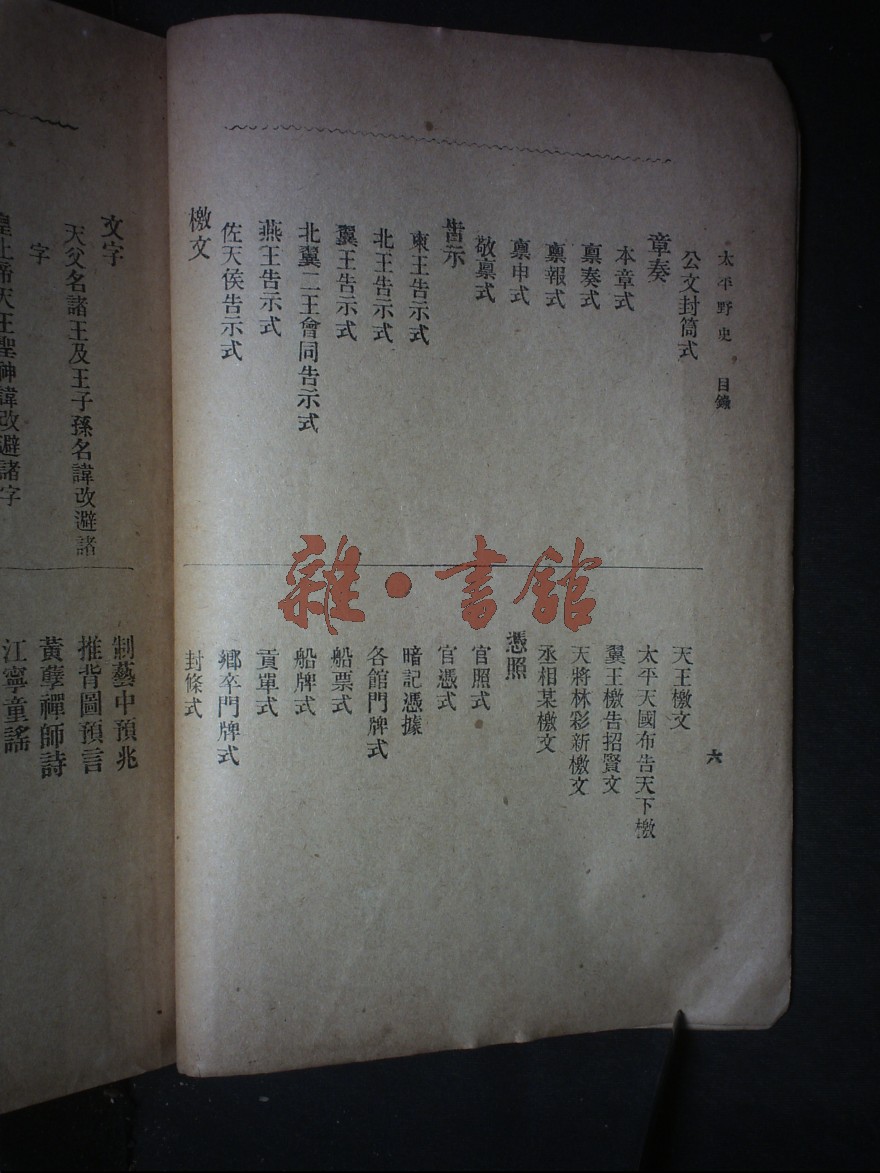 太平野史 目錄
六
公文封筒式
章奏
本章式
稟奏式
稟報式
稟申式
敬稟式
告示
東王告示式
北王告示式
翼王告示式
北翼二王會同告示式
燕王告示式
佐天侯告示式
檄文
天王檄文
太平天國布告天下檄
翼王檄告招賢文
天將林彩新檄文
丞相某檄文
憑照
官照式
官憑式
暗記憑據
各館門牌式
船票式
船牌式
貢單式
鄉卒門牌式
封條式
文字
天父名諸王及王子孫名諱改避諸
字
皇上帝天王聖神諱改避諸字
制藝中預兆
推背圖預言
黃孽禪師詩
江寧童謠
雜·書館